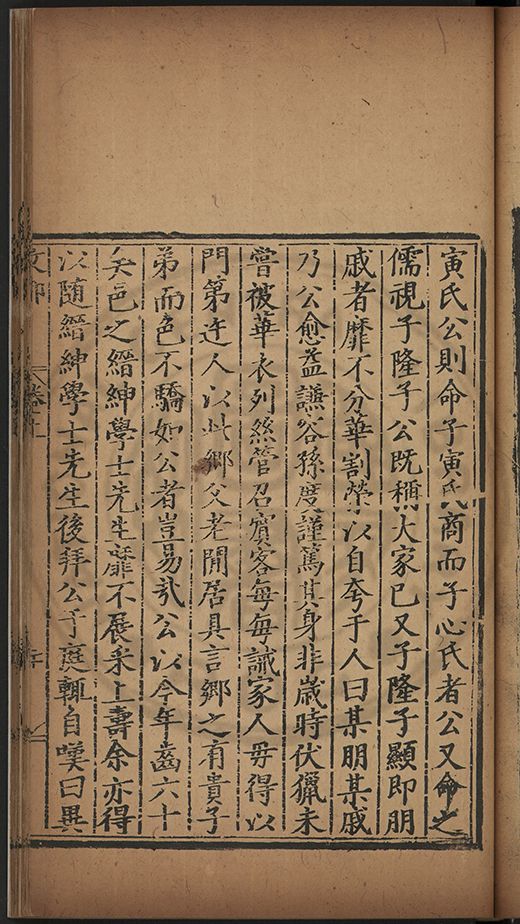 寅氏公則命子寅氏商而子心氏者公又命之
儒視子隆子公既稱大家已又子隆子顯即朋
戚者靡不分華割榮以自夸于人曰某朋某戚
乃公愈益讌容孫度謹篤其身非歲時伏獵未
嘗被華衣列絲管召賓客每每諴家人毋得以
門第迕人以此鄉父老閒居具言鄉之有貴子
弟而色不驕如公者豈易㢤公以今年齒六十
矣邑之縉紳學士先生靡不展采上壽余亦得
以隨縉紳學士先生後拜公于庭輒自嘆曰異